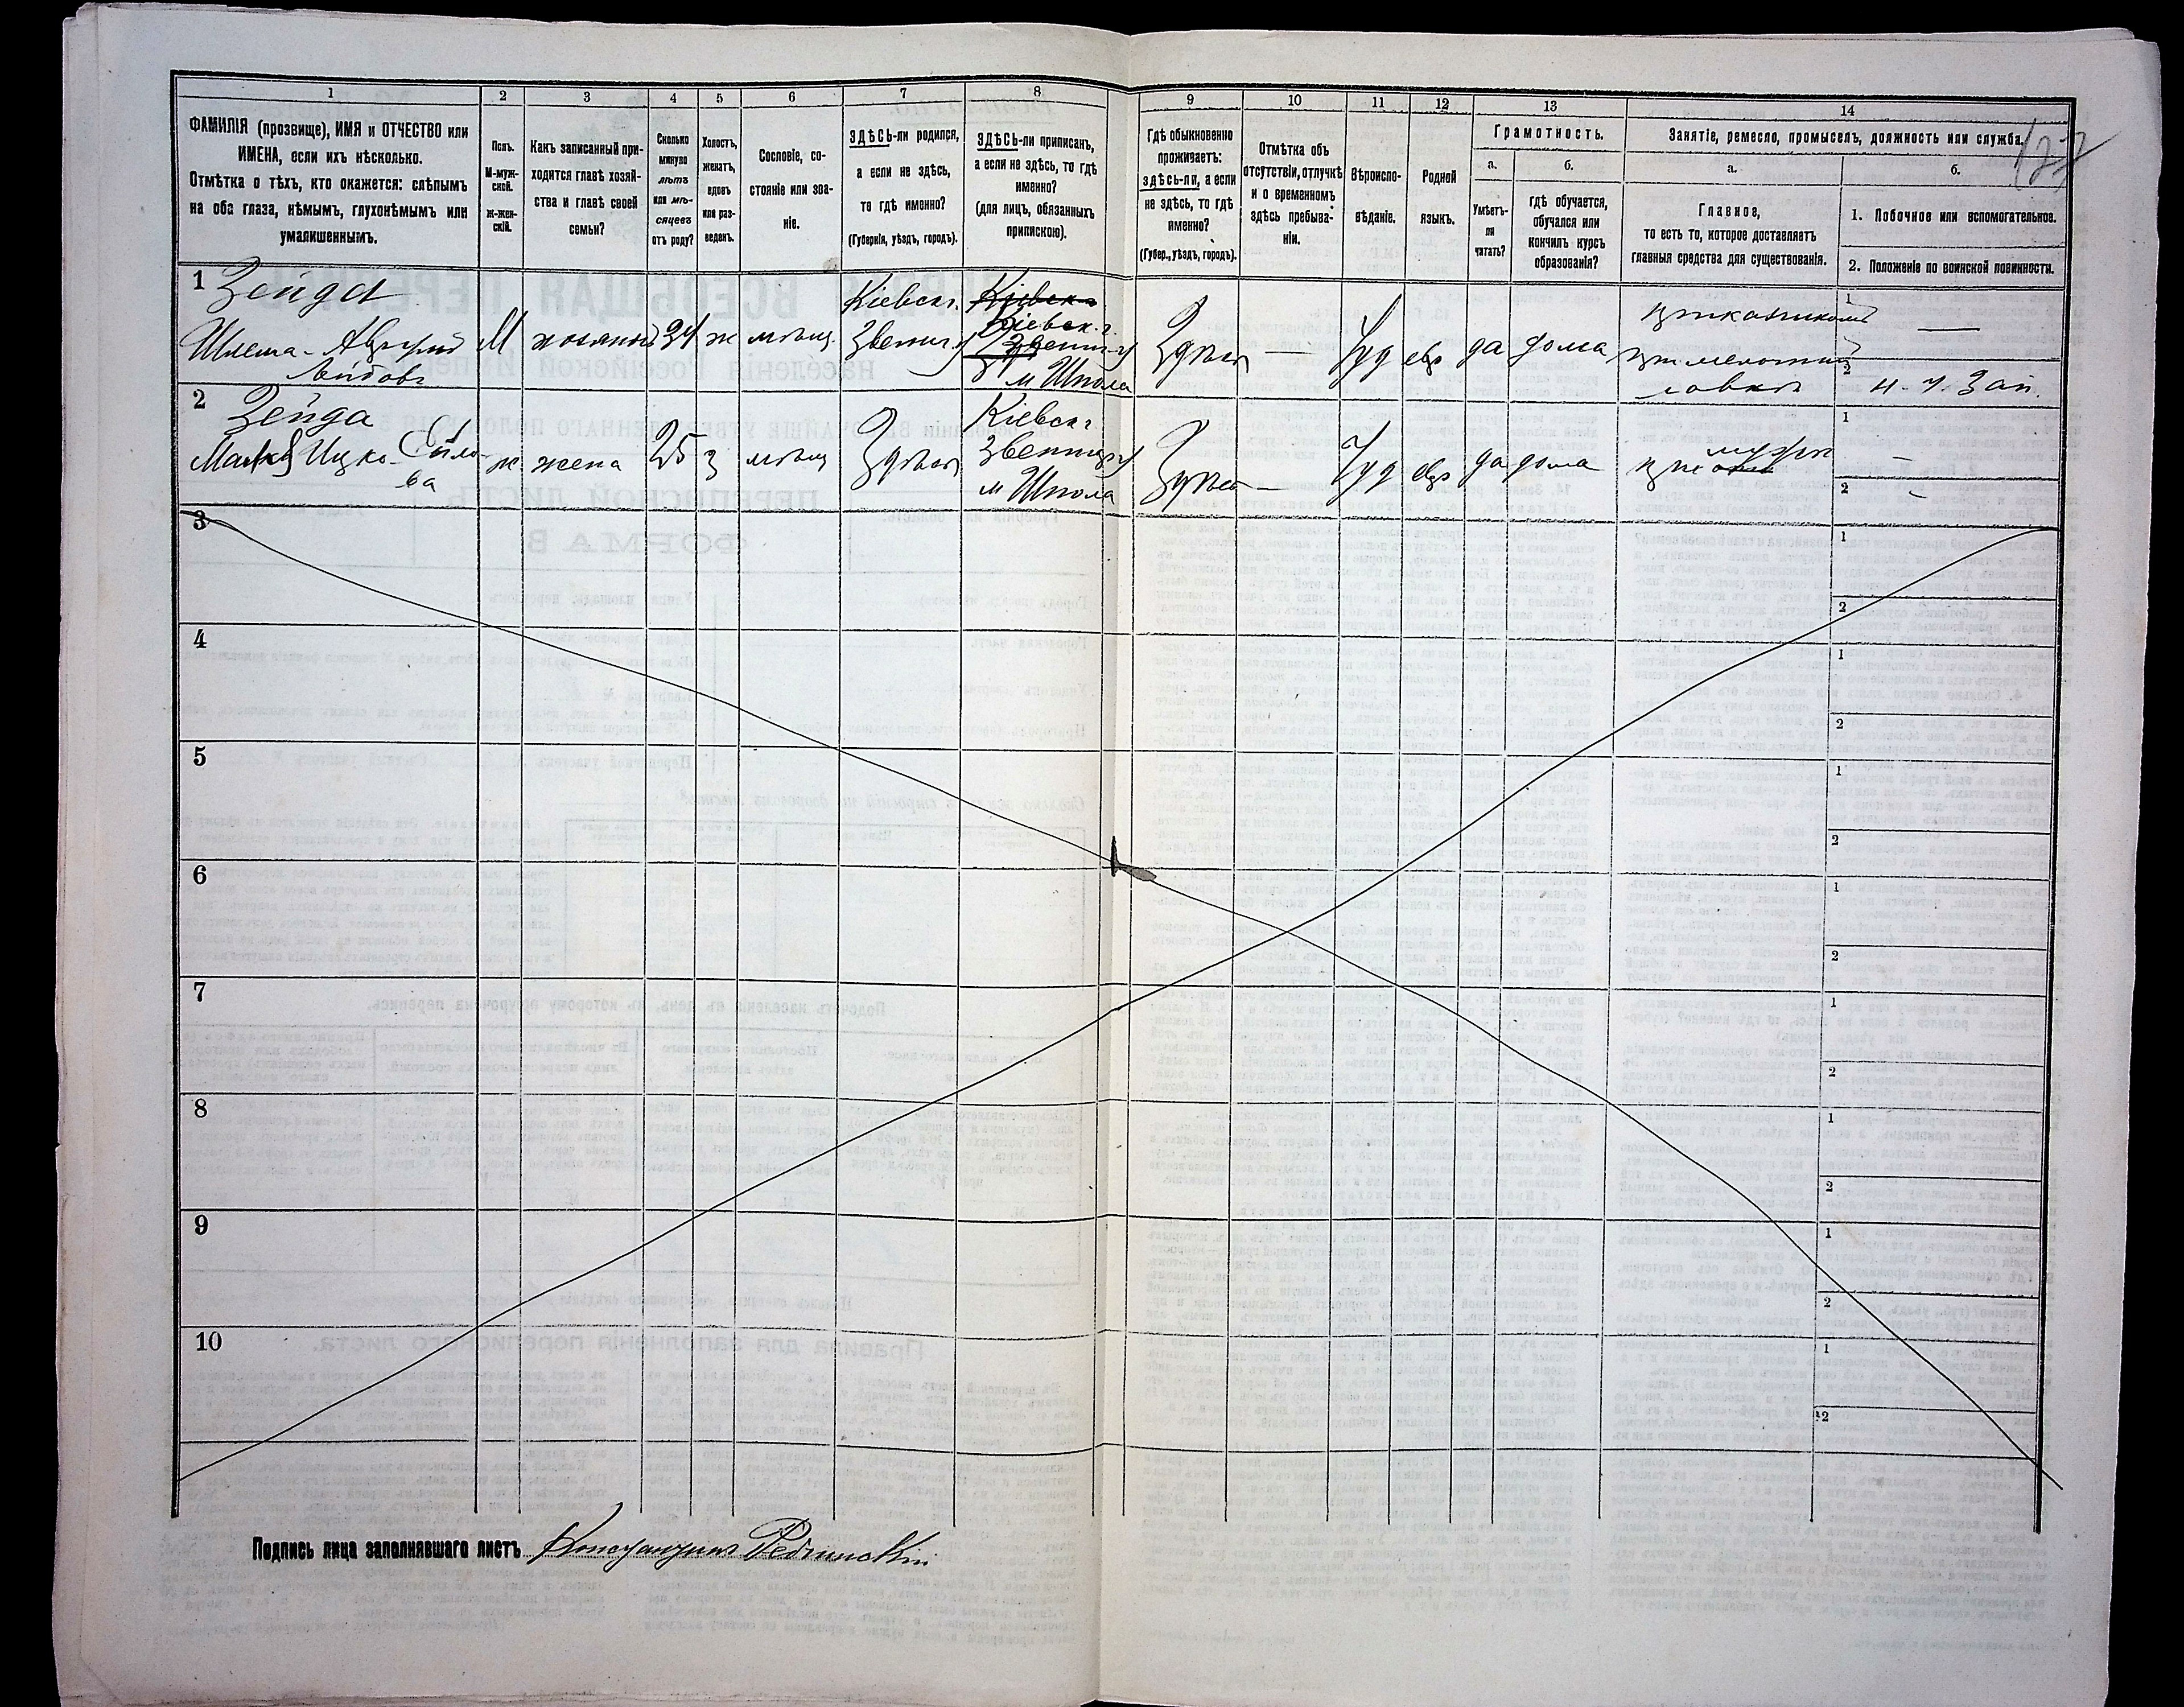 127
1 2 3 4 5 6 7 8 9 10 11 12 13 14
ФАМИЛІЯ (прозвище), ИМЯ и ОТЧЕСТВО или
ИМЕНА, если ихъ нѣсколько.
Отмѣтка о тѣхъ, кто окажется: слѣпымъ
на оба глаза, нѣмымъ, глухонѣмымъ или
умалишеннымъ.
Полъ.
М-муж-
ской.
ж-жен-
скій.
Какъ записанный при-
ходится главѣ хозяй-
ства и главѣ своей
семьи?
Сколько
минуло
лѣтъ
или мѣ-
сяцевъ
отъ роду?
Холостъ,
женатъ,
вдовъ
или раз-
веденъ.
Сословіе, со-
стояніе или зва-
ніе.
ЗДѢСЬ-ли родился,
а если не здѣсь,
то гдѣ именно?
(Губернія, уѣздъ, городъ).
ЗДѢСЬ-ли приписан,
а если не здѣсь, то гдѣ
именно?
(для лицъ, обязанныхъ
припискою).
Гдѣ обыкновенно
проживаетъ:
здѣсь-ли, а если
не здѣсь, то гдѣ
именно?
(Губер., уѣздъ, городъ).
Отмѣтка объ
отсутствіи, отлучкѣ
и о временномъ
здѣсь пребыва-
ніи.
Вѣроиспо-
вѣданіе.
Родной
языкъ.
Грамотность.
а.
Умѣетъ-
ли
читать?
б.
гдѣ обучается,
обучался или
кончилъ курсъ
образованія?
Занятіе, ремесло, промыселъ, должность или служба.
а.
Главное,
то есть то, которое доставляетъ
главныя средства для существованія.
б.
1. Побочное или вспомогательное.
2. Положеніе по воинской повинности.
1 Зейда
Шлема-
М хозяинъ 24 ж мѣщ.
Кіевск.
Звениг. у
Кіевск. г.
Звениг. у
м Шпола
Здѣсь — Іуд евр да дома
приказчикомъ
лавкѣ
1 —
2
2 Зейда
Ицко-
ва
ж жена 25 з мѣщ Здѣсь
Кіевск г
Звениг у
м Шпола
Здѣсь — Іуд евр да дома
при мужѣ
1 —
2 -
3 1
2
4 1
2
5 1
2
6 1
2
7 1
2
8 1
2
9 1
2
10 1
2
Подпись лица заполнявшаго листъ Константинъ